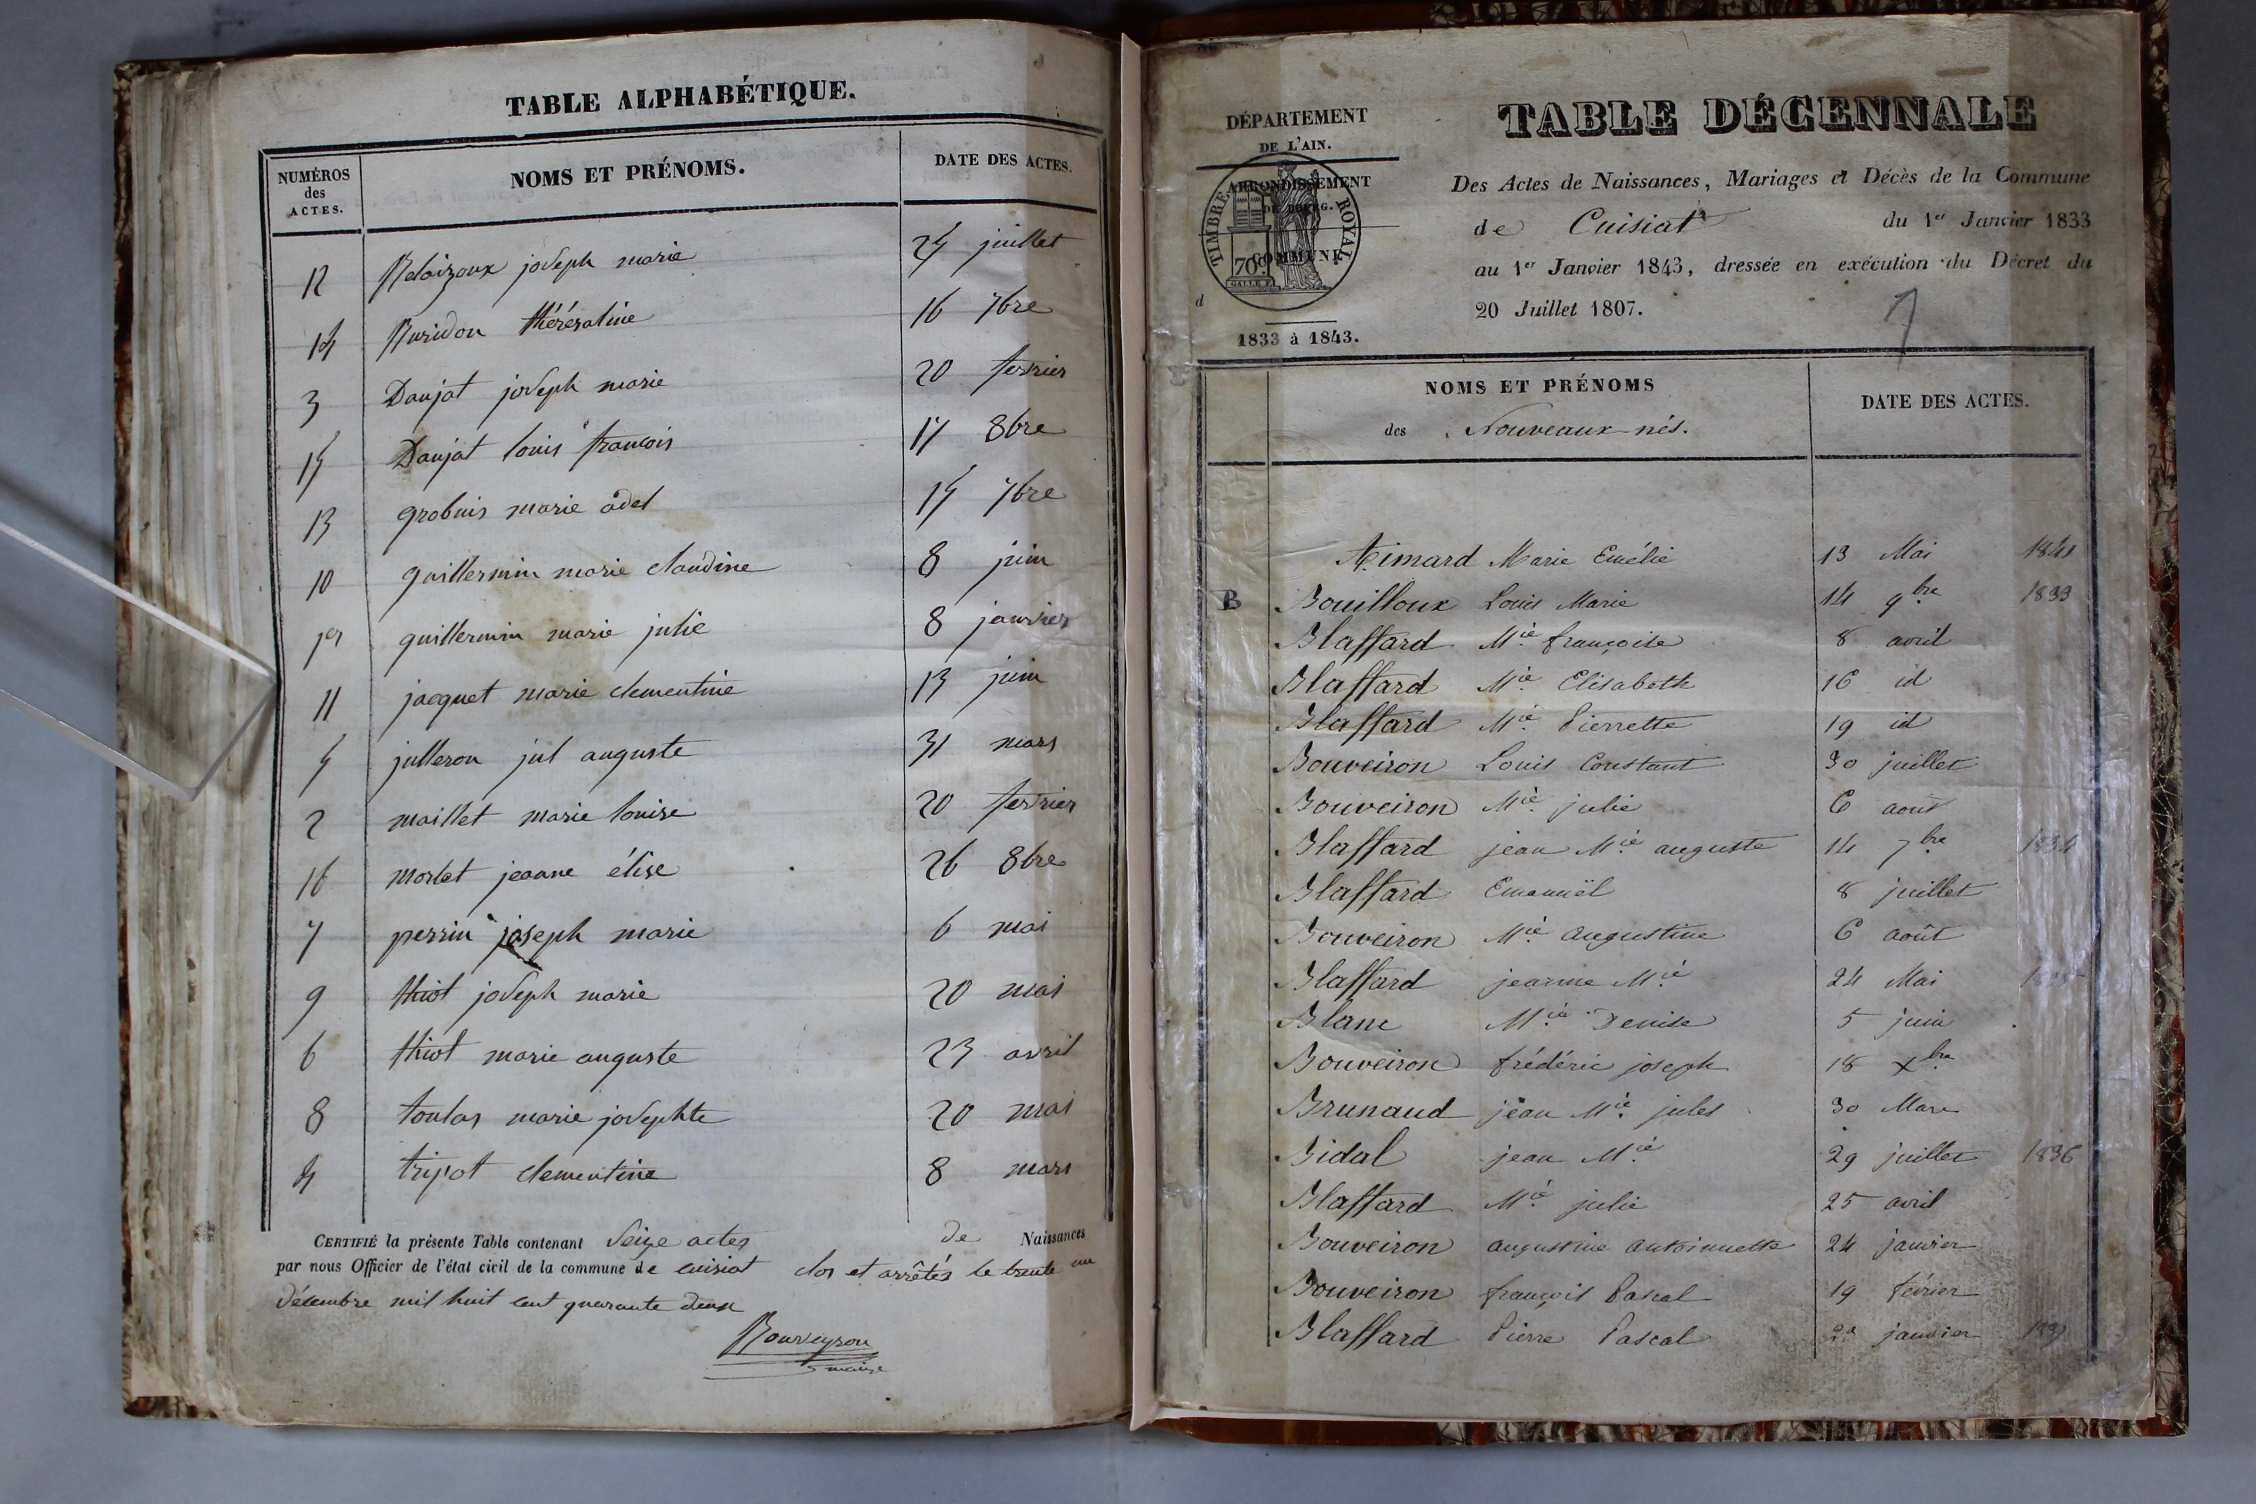 TABLE ALPHABÉTIQUE.
NUMÉROS des ACTES. NOMS ET PRÉNOMS. DATE DES ACTES.
12 joseph marie 24 juillet
14 Buridon 16 7bre
3 Daujat joseph marie 20 fevrier
15 Daujat louis francois 17 8bre
13 grobuis marie adel 15 7bre
10 guillermin marie claudine 8 juin
1er guillermin marie julie 8 janvier
11 jacquet marie clementine 13 juin
5 julleron jul auguste 31 mars
2 maillet marie louise 20 fevrier
16 morlet jeanne élise 26 8bre
7 perrin joseph marie 6 mai
9 thiot joseph marie 20 mai
6 thiot marie auguste 23 avril
8 toulas marie josephte 20 mai
4 tripot clementine 8 mars
CERTIFIÉ la présente Table contenant Seize actes de Naissances
par nous Officier de l'état civil de la commune de cuisiat clos et arrêtés le trente un
Décembre mil huit cent quarante deux
Bouveyron
maire
DÉPARTEMENT
DE L'AIN.
ARRONDISSEMENT
DE BOURG.
COMMUNE
d
TIMBRE ROYAL
70c
1833 à 1843.
TABLE DÉCENNALE
Des Actes de Naissances, Mariages et Décès de la Commune
de Cuisiat du 1er Janvier 1833
au 1er Janvier 1843, dressée en exécution du Décret du
20 Juillet 1807.
NOMS ET PRÉNOMS DATE DES ACTES.
des Nouveaux-nés.
Aimard Marie Emélie 13 Mai 1841
B Bouilloux Louis Marie 14 9bre 1833
Blaffard Mie françoise 8 avril
Blaffard Mie Elisabeth 16 id
Blaffard Mie Pierrette 19 id
Bouveiron Louis Constant 30 juillet
Bouveiron Mie julie 6 août
Blaffard jean Mie auguste 14 7bre 1834
Blaffard Emanuël 8 juillet
Bouveiron Mie augustine 6 août
Blaffard jeanne Mie 24 Mai 1835
Blanc Mie Denise 5 juin
Bouveiron frédéric joseph 18 Xbre
Brunaud jean Mie jules 30 Mars
Bidal jean Mie 29 juillet 1836
Blaffard Mie julie 25 avril
Bouveiron augustine antoinette 24 janvier
Bouveiron françois Pascal 19 février
Blaffard Pierre Pascal janvier